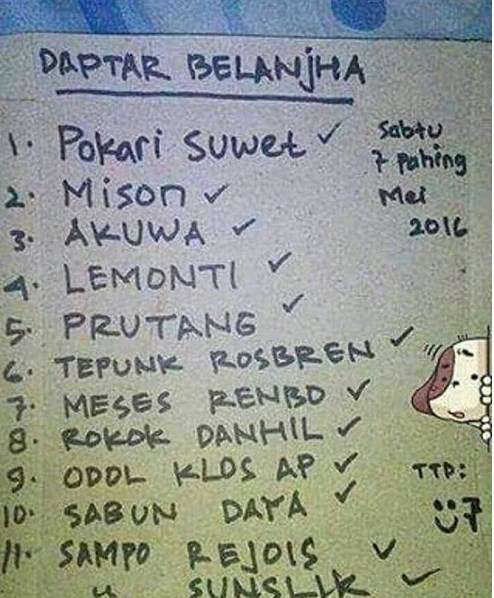 DAPTAR BELANJHA
1. Pokari Suwet ✓
Sabtu
7 Pahing
Mei
2016
2. Mison ✓
3. AKUWA ✓
4. LEMONTI ✓
5. PRUTANG ✓
6. TEPUNK ROSBREN ✓
7. MESES RENBO ✓
8. ROKOK DANHIL ✓
9. ODOL KLOS AP ✓
TTD:
10. SABUN DATA ✓
11. SAMPO REJOIS ✓
" SUNSLIK ✓